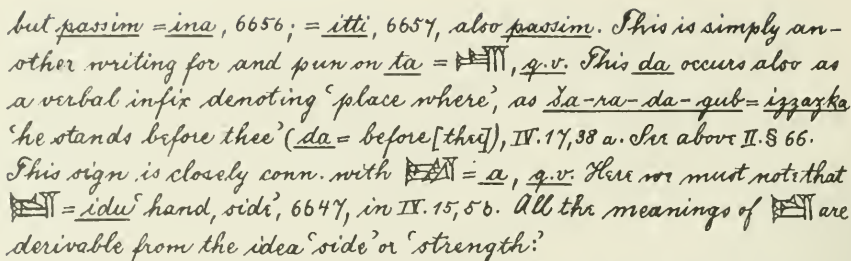 but passim = ina, 6656; = itti, 6657, also passim. This is simply an-
other writing for and pun on ta = 𒋫, q.v. This da occurs also as
a verbal infix denoting 'place where', as Sa-ra-da-gub = izzazka
'he stands before thee' (da = before [thee]), IV. 17, 38 a. See above II. § 66.
This sign is closely conn. with = a, q.v. Here we must note that
= idu 'hand, side', 6647, in IV. 15, 5 b. All the meanings of are
derivable from the idea 'side' or 'strength:'